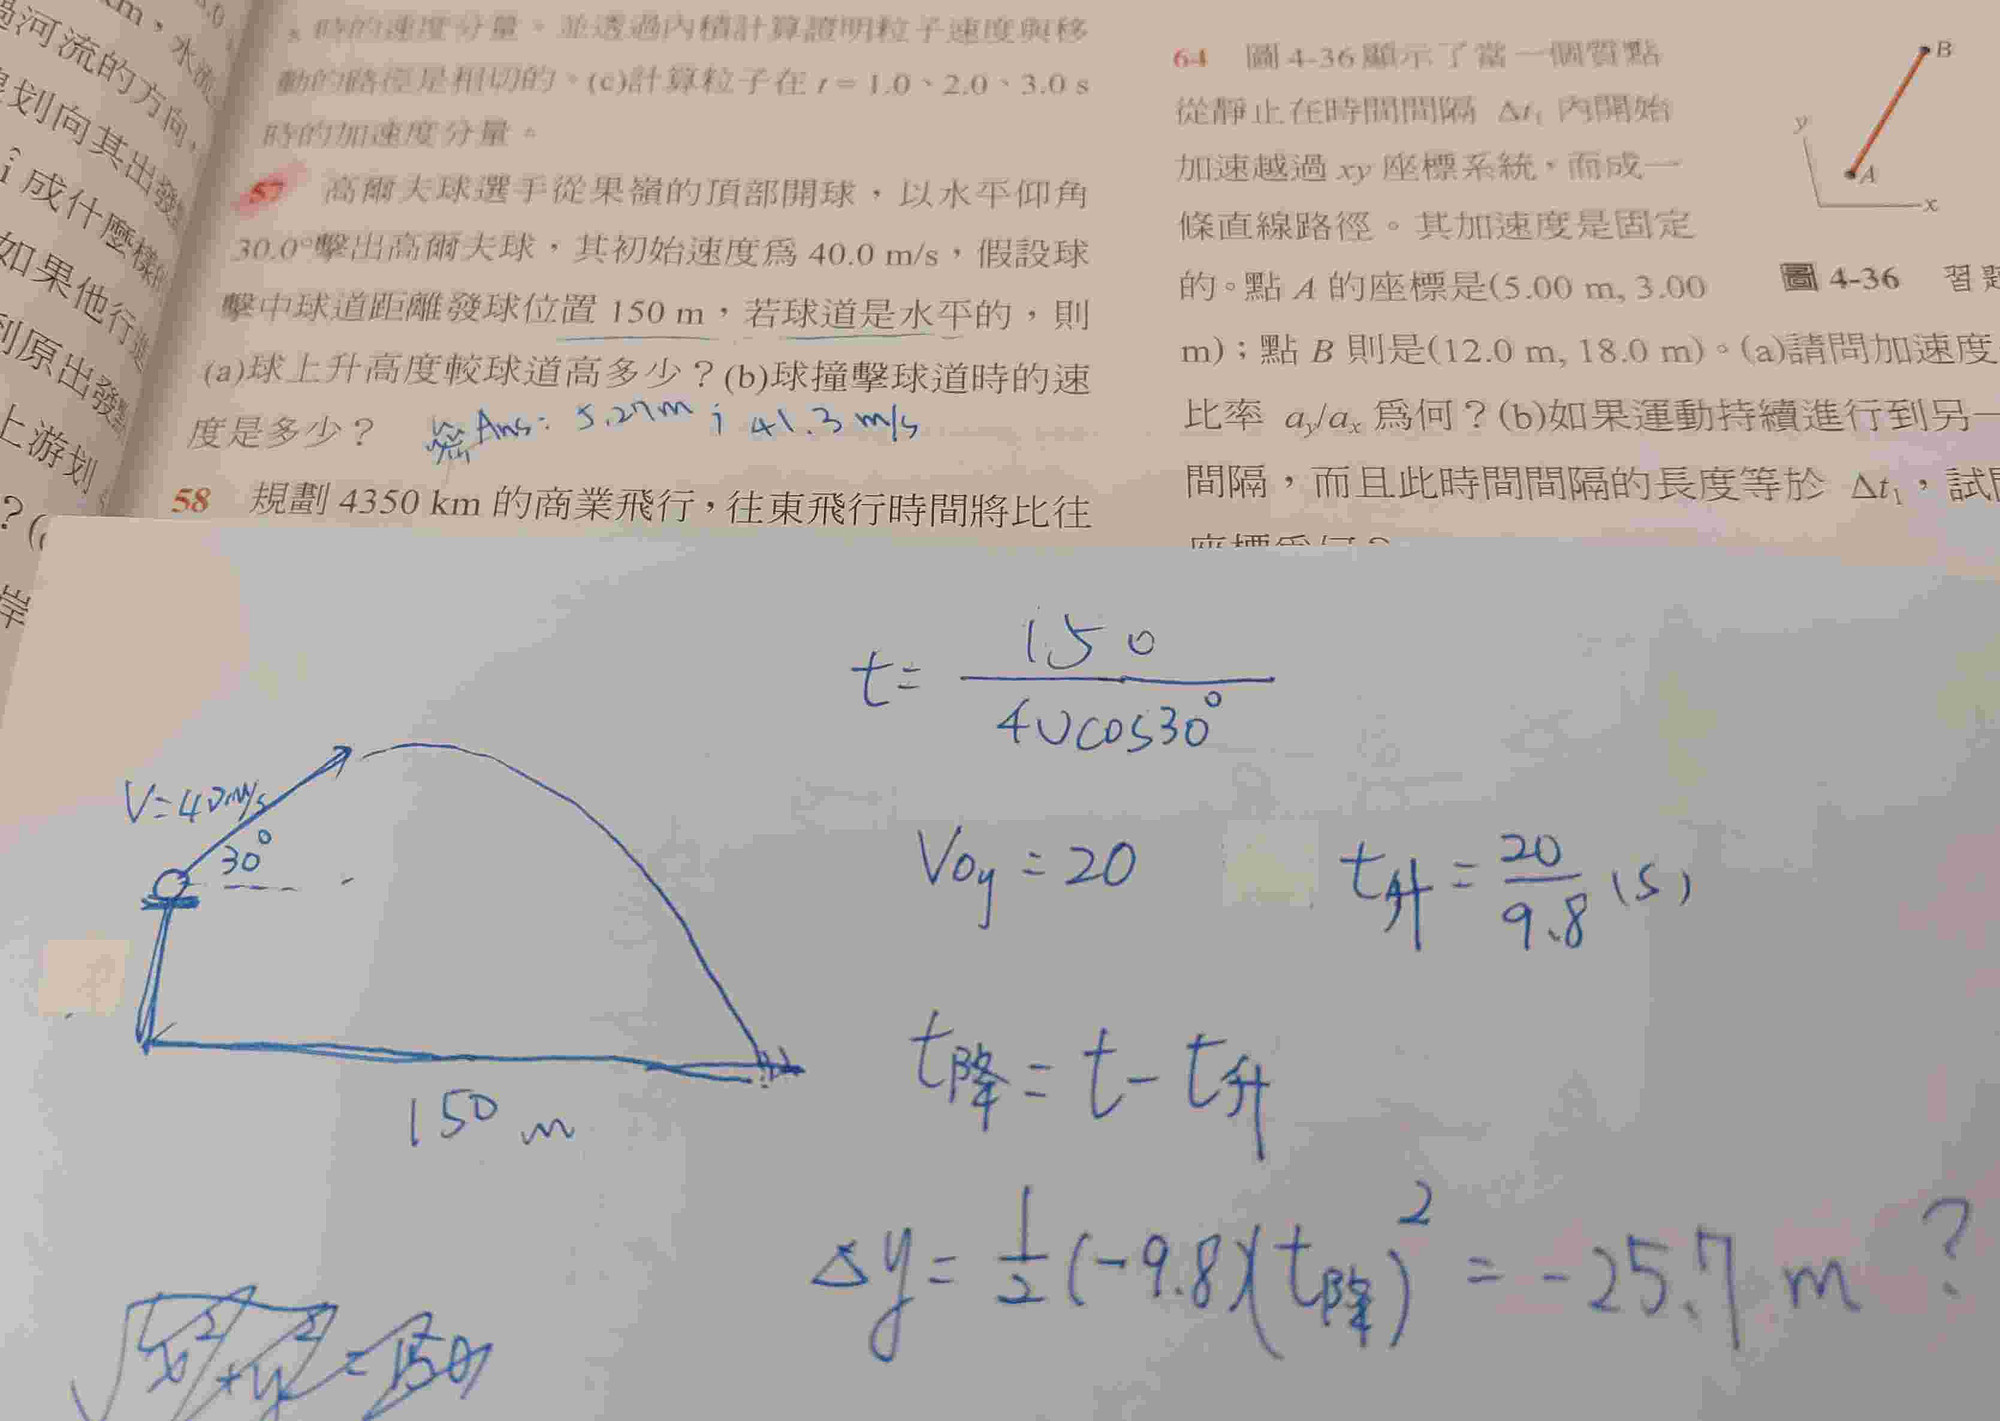 過河流的方向,
划向其出發
成什麼樣的
如果他行進
到原出發點
上游划
岸
s 時的速度分量。並透過內積計算證明粒子速度與移
動的路徑是相切的。(c)計算粒子在 t = 1.0、2.0、3.0 s
時的加速度分量。
57 高爾夫球選手從果嶺的頂部開球,以水平仰角
30.0°擊出高爾夫球,其初始速度為 40.0 m/s,假設球
擊中球道距離發球位置 150 m,若球道是水平的,則
(a)球上升高度較球道高多少?(b)球撞擊球道時的速
度是多少?
Ans: 5.27m ; 41.3 m/s
58 規劃 4350 km 的商業飛行,往東飛行時間將比往
64 圖 4-36 顯示了當一個質點
從靜止在時間間隔 Δt₁ 內開始
加速越過 xy 座標系統,而成一
條直線路徑。其加速度是固定
的。點 A 的座標是(5.00 m, 3.00
m);點 B 則是(12.0 m, 18.0 m)。(a)請問加速度
比率 ay/ax 為何?(b)如果運動持續進行到另一
間隔,而且此時間間隔的長度等於 Δt₁,試問
座標為何?
y
B
A
x
圖 4-36 習題
t = 150 / 40cos30°
V=40m/s
30°
150 m
V0y = 20
t升 = 20/9.8 (s)
t降 = t - t升
Δy = 1/2 (-9.8)(t降)² = -25.7 m ?
√x²+y² = 150